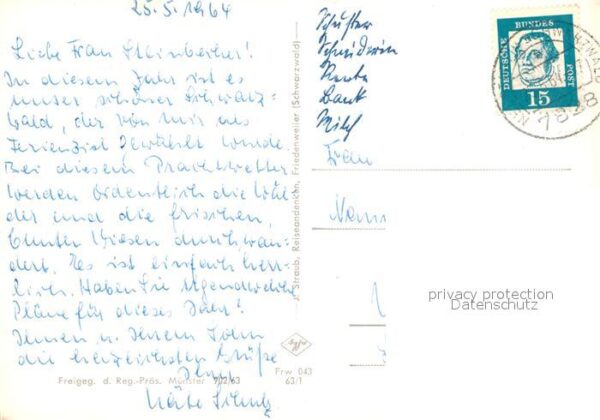 25.5.1964
Liebe Frau Steinbecher!
In diesem Jahr ist es
unser schöner Schwarz-
wald, der von mir als
Ferienziel gewählt wurde.
Bei diesem Prachtwetter
werden ordentlich die Wäl-
der und die frischen,
bunten Wiesen durchwan-
dert. Es ist einfach herr-
lich. Haben Sie irgendwelche
Pläne für dieses Jahr?
Ihnen u. Ihrem Sohn
die herzlichsten Grüße
Ihre
Käte
Freigeg. d. Reg.-Präs. Münster 702/63
Frw 043
63/1
Straub, Reiseandenken, Friedenweiler (Schwarzwald)
Schuster
Schneiderin
Rente
Bank
Milch
Frau
DEUTSCHE BUNDES POST
15
7828
privacy protection
Datenschutz